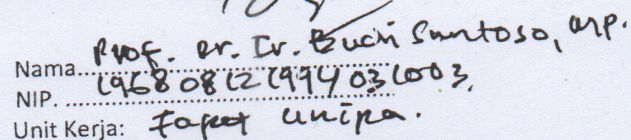 Nama. Prof. Dr. Ir. Budi Santoso, MP.
NIP. 196808121994031003.
Unit Kerja: Fapet Unipa.